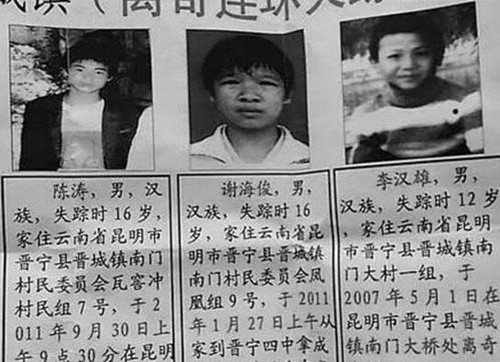 镇（离奇连环
陈涛，男，汉
族，失踪时16岁，
家住云南省昆明市
晋宁县晋城镇南门
村民委员会瓦窑冲
村民组7号，于2
011年9月30日上
午9点30分在昆明
谢海俊，男，
汉族，失踪时16
岁，家住云南省昆
明市晋宁县晋城镇
南门村民委员会凤
凰组9号，于2011
年1月27日上午从
家到晋宁四中拿成
李汉雄，男，
汉族，失踪时12岁，
家住云南省昆明
市晋宁县晋城镇南
门大村一组，于
2007年5月1日在
昆明市晋宁县晋城
镇南门大桥处离奇